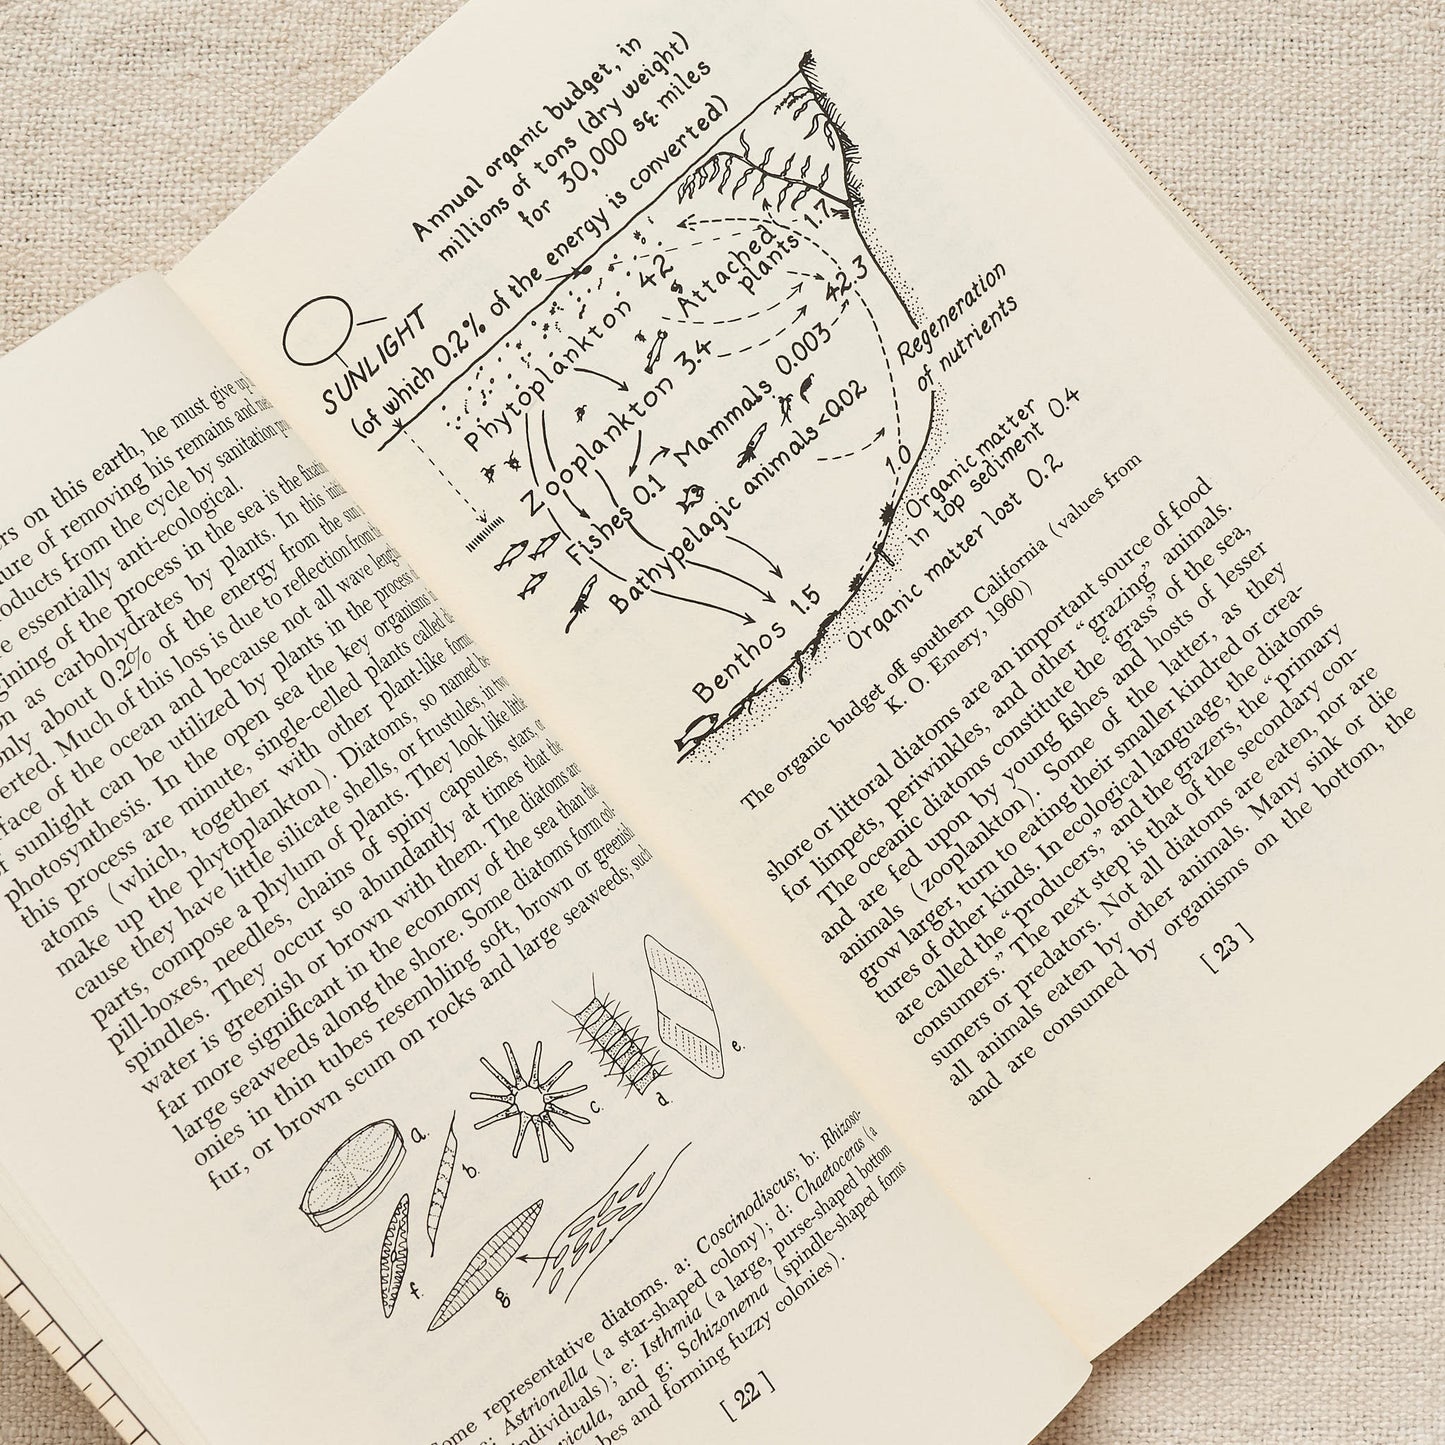 ers on this earth, he must give up
ure of removing his remains and
oducts from the cycle by sanitation
re essentially anti-ecological.
ginning of the process in the sea is the fixation
on as carbohydrates by plants. In this
only about 0.2% of the energy from the sun
erted. Much of this loss is due to reflection from the
face of the ocean and because not all wave lengths
of sunlight can be utilized by plants in the process
photosynthesis. In the open sea the key organisms
this process are minute, single-celled plants called
atoms (which, together with other plant-like forms
make up the phytoplankton). Diatoms, so named
cause they have little silicate shells, or frustules, in two
parts, compose a phylum of plants. They look like little
pill-boxes, needles, chains of spiny capsules, stars,
spindles. They occur so abundantly at times that the
water is greenish or brown with them. The diatoms are
far more significant in the economy of the sea than the
large seaweeds along the shore. Some diatoms form col
onies in thin tubes resembling soft, brown or greenish
fur, or brown scum on rocks and large seaweeds; such
a.
b.
c.
d.
e.
f.
g
Some representative diatoms. a: Coscinodiscus; b: Rhizoso-
c: Astrionella (a star-shaped colony); d: Chaetoceras (a
individuals); e: Isthmia (a large, purse-shaped bottom
vicula, and g: Schizonema (spindle-shaped forms
bes and forming fuzzy colonies).
[ 22 ]
Annual organic budget, in
millions of tons (dry weight)
for 30,000 sq. miles
SUNLIGHT
(of which 0.2% of the energy is converted)
Phytoplankton 42
Attached
plants 1.7
Zooplankton 3.4
42.3
Fishes 0.1
Mammals 0.003
Bathypelagic animals <0.02
1.0
Benthos 1.5
Regeneration
of nutrients
Organic matter
in top sediment 0.4
Organic matter lost 0.2
The organic budget off southern California (values from
K. O. Emery, 1960)
shore or littoral diatoms are an important source of food
for limpets, periwinkles, and other "grazing" animals.
The oceanic diatoms constitute the "grass" of the sea,
and are fed upon by young fishes and hosts of lesser
animals (zooplankton). Some of the latter, as they
grow larger, turn to eating their smaller kindred or crea-
tures of other kinds. In ecological language, the diatoms
are called the "producers," and the grazers, the "primary
consumers." The next step is that of the secondary con-
sumers or predators. Not all diatoms are eaten, nor are
all animals eaten by other animals. Many sink or die
and are consumed by organisms on the bottom, the
[ 23 ]